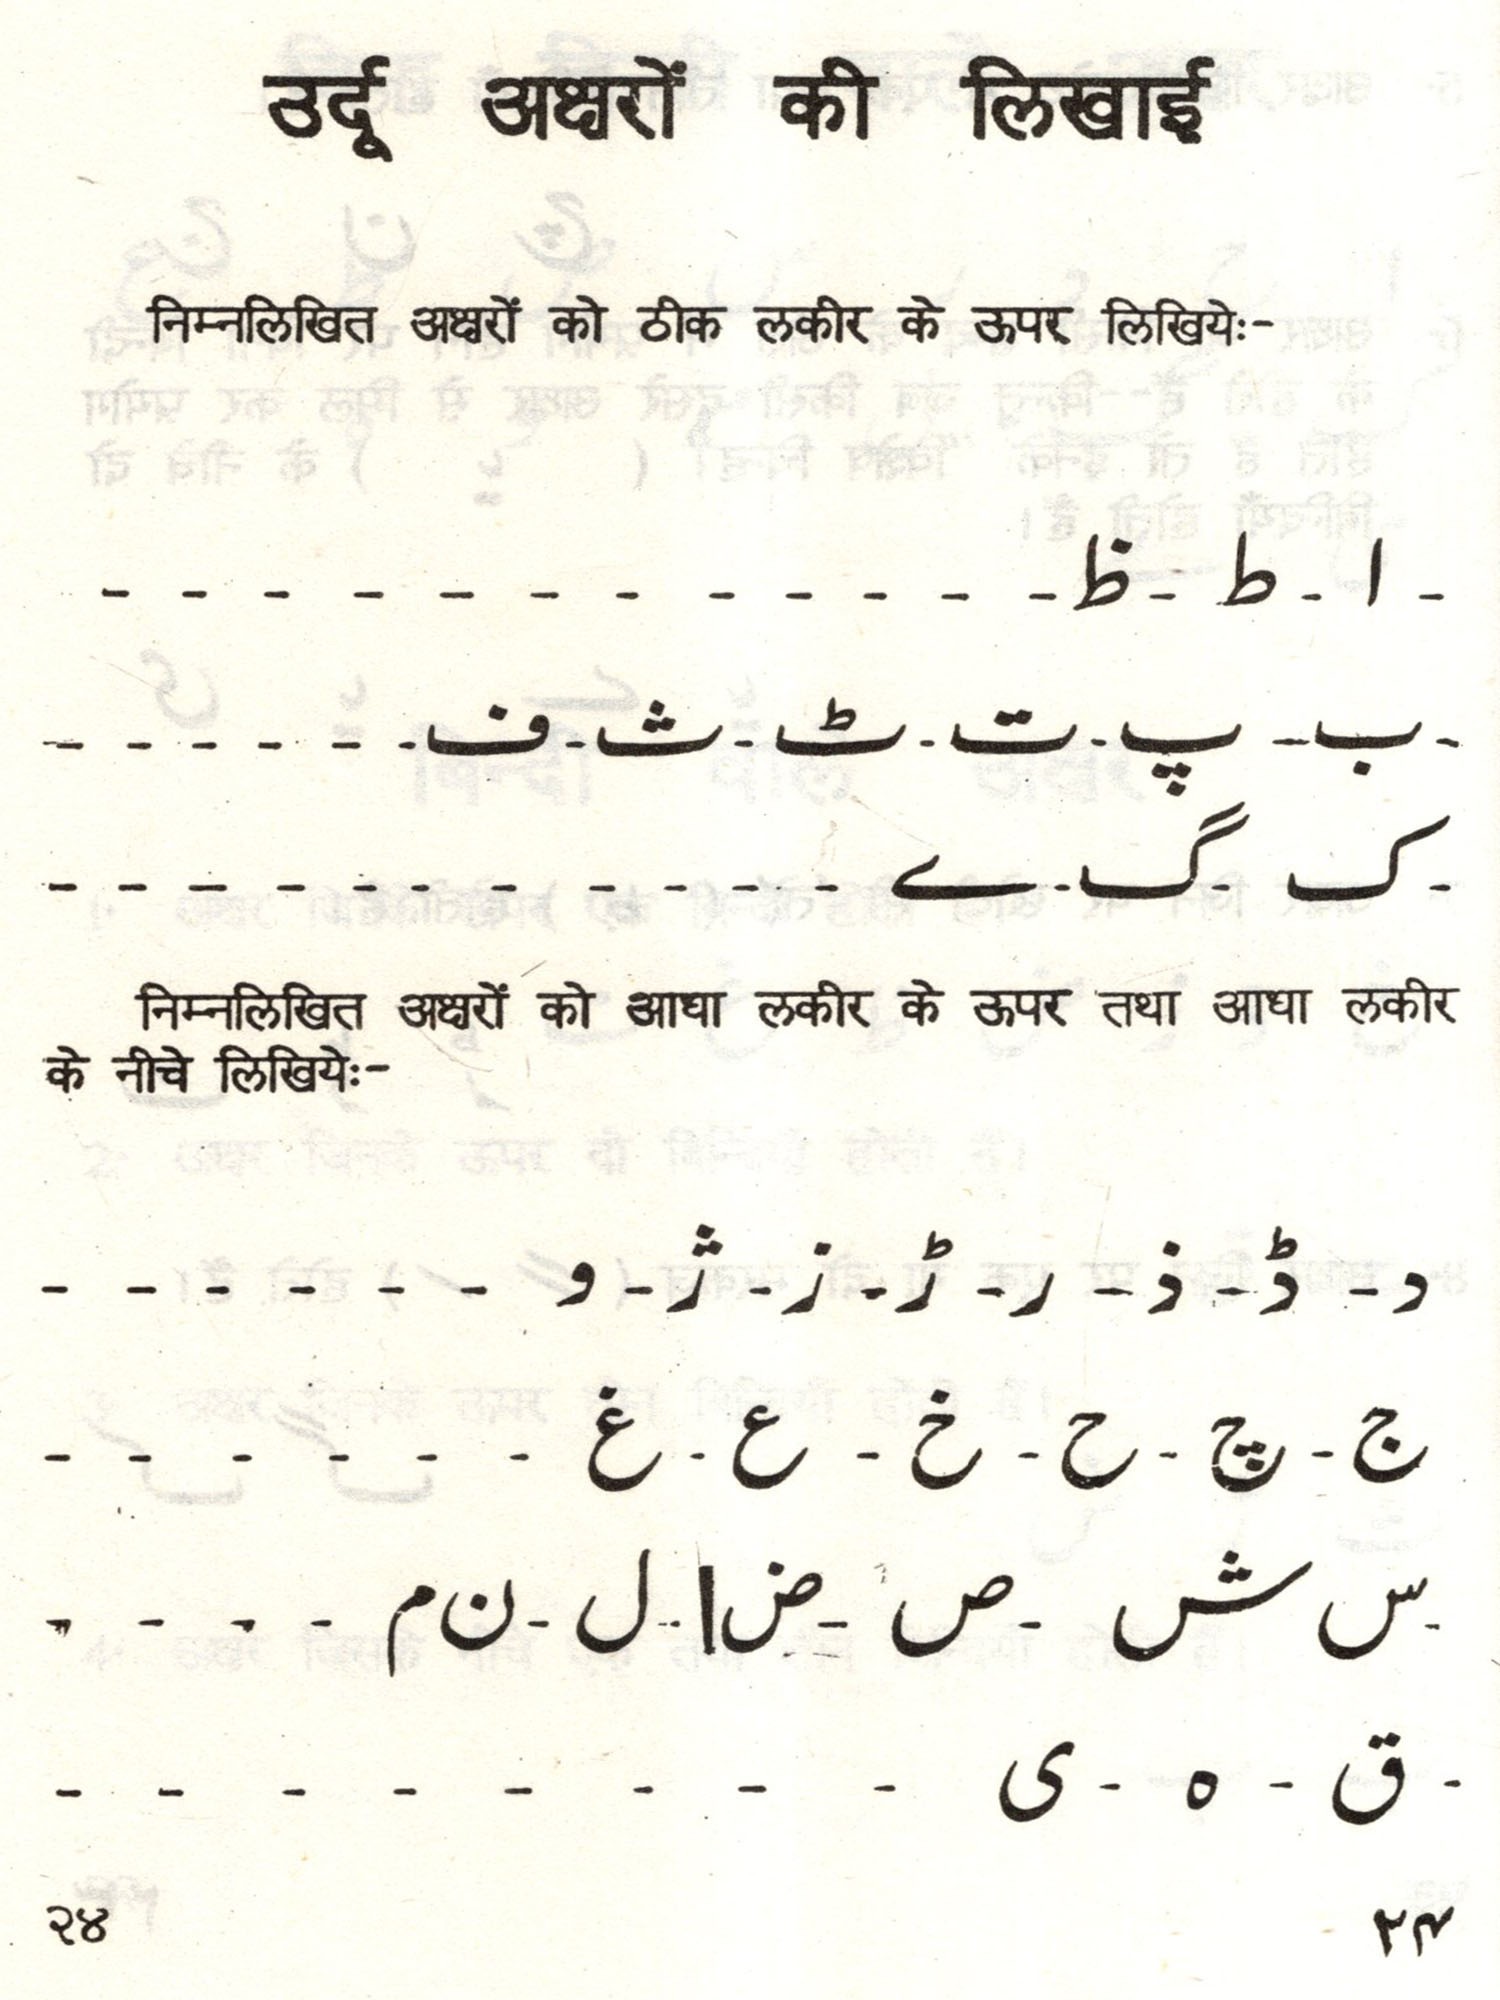 उर्दू अक्षरों की लिखाई
निम्नलिखित अक्षरों को ठीक लकीर के ऊपर लिखियेः-
- ا - ط - ظ - - - - - - - - - - - -
- ب - پ - ت - ٹ - ث - ف - - - - - -
- ک - گ - ے - - - - - - - - - -
निम्नलिखित अक्षरों को आधा लकीर के ऊपर तथा आधा लकीर
के नीचे लिखियेः-
د - ڈ - ذ - ر - ڑ - ز - ژ - و - - - - - -
ج - چ - ح - خ - ع - غ - - - - - -
- س ش - ص - ض ا - ل - ن م - - - -
- ق - ه - ی - - - - - - - -
२४ ۲۴